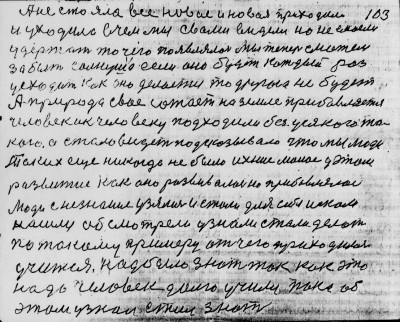 А не стояла все новое и новая приходила 103
и уходило в чем мы сваими видели но не смогли
удержат то чего появлялос Мы теперь сможем
забыт солнцшо если оно будет каждый раз
уходит как оно делается то другова не будет.
А природа свое сотает на земле прибавляется
человек к человеку подходили без всякого та-
кого, а стало видет подсказывало что мы люди
Таких еще никогда не было их ние малое у этом
развитие как оно развивалос но прибавлялос
Люди с незнания узялис и стали для себя искат
нашли обсмотрели узнали стали делат
по такому примеру от чего приходилос
учится. Надо было знат так как это
надо человек долго учили пока об
этом узнал стал знат